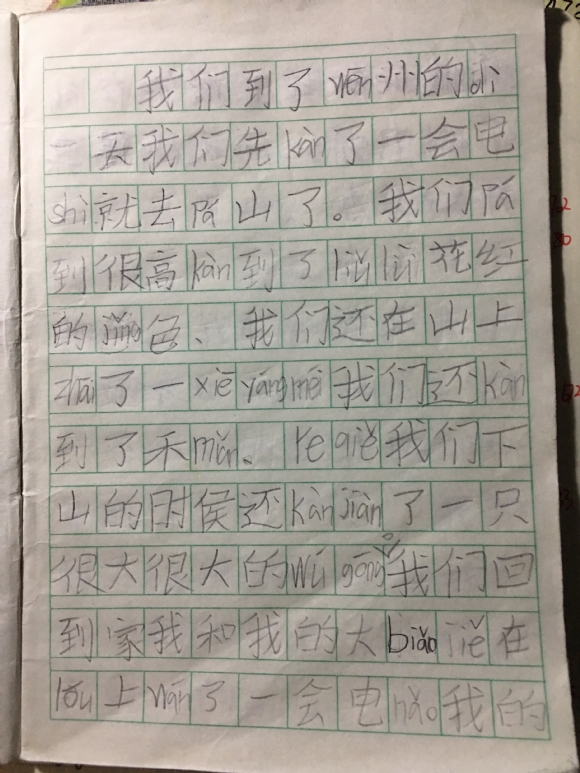 我们到了wēn州的dì
一天我们先kàn了一会电
shì就去Pá山了。我们Pá
到很高kàn到了liǔ lǜ花红
的jǐng色、我们还在山上
zhāi了一xiē yáng méi我们还kàn
到了禾mán。re qiě我们下
山的时侯还kàn jiàn了一只
很大很大的Wú gōng我们回
到家我和我的大biǎo jiě在
lóu上wán了一会电nǎo。我的